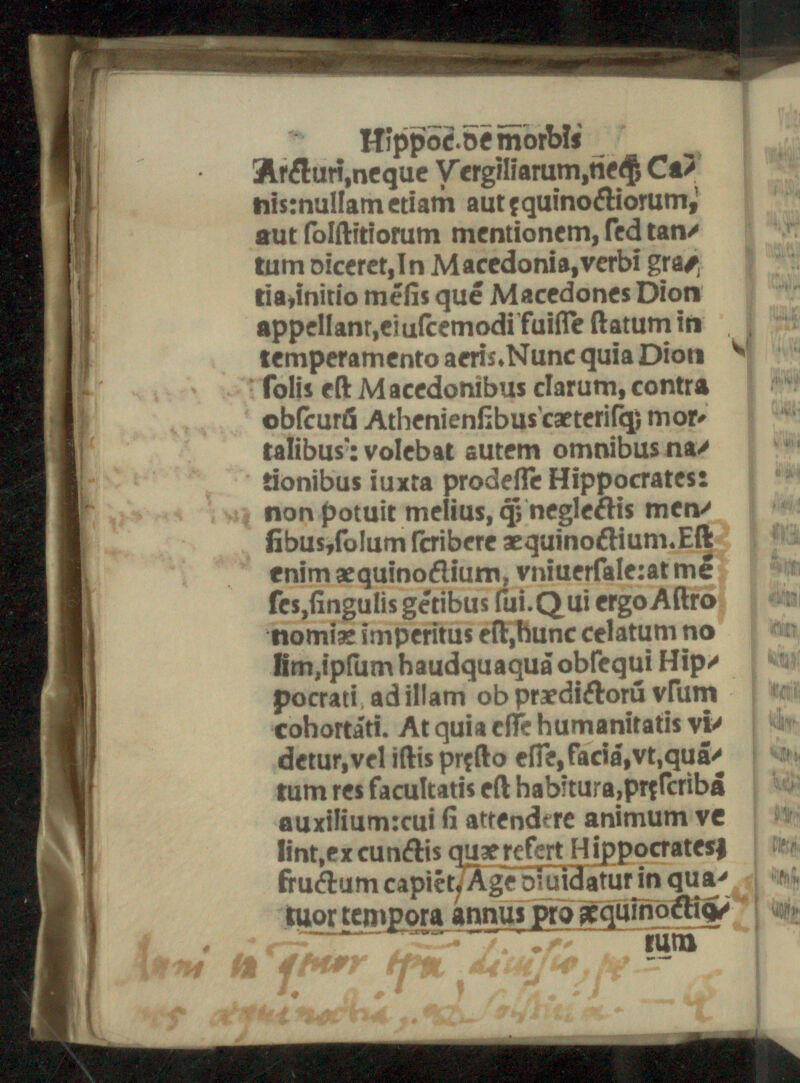 Hippoc̄.de morbis
Arcturi,neque Vergiliarum,neq; Ca⸗
nis:nullam etiam aut ęquinoctiorum,
aut ſolſtitiorum mentionem, ſed tan⸗
tum diceret,In Macedonia,verbi gra⸗
tia,initio mēſis quē Macedones Dion
appellant,eiuſcemodi fuiſſe ſtatum in
temperamento aeris.Nunc quia Dion
ſolis eſt Macedonibus clarum, contra
obſcurū Athenienſibus cæteriſq; mor⸗
talibus: volebat autem omnibus na⸗
tionibus iuxta prodeſſe Hippocrates:
non potuit melius, q̄; neglectis men⸗
ſibus,ſolum ſcribere æquinoctium.Eſt
enim æquinoctium, vniuerſale:at mē
ſes,ſingulis gētibus ſui.Qui ergo Aſtro
nomiæ imperitus eſt,hunc celatum no
lim,ipſum haudquaquā obſequi Hip⸗
pocrati, ad illam ob prædictorū vſum
cohortāti. At quia eſſe humanitatis vi⸗
detur,vel iſtis pręſto eſſe,faciā,vt,quā⸗
tum res facultatis eſt habitura,pręſcribā
auxilium:cui ſi attendere animum ve
lint,ex cunctis quæ refert Hippocrates,
fructum capiēt, Age diuidatur in qua⸗
tuor tempora annus pro æquinoctio⸗
rum
Anni in qtuor tp̄a diuisio, pe-
nes æquinoctia, et Solstitia.